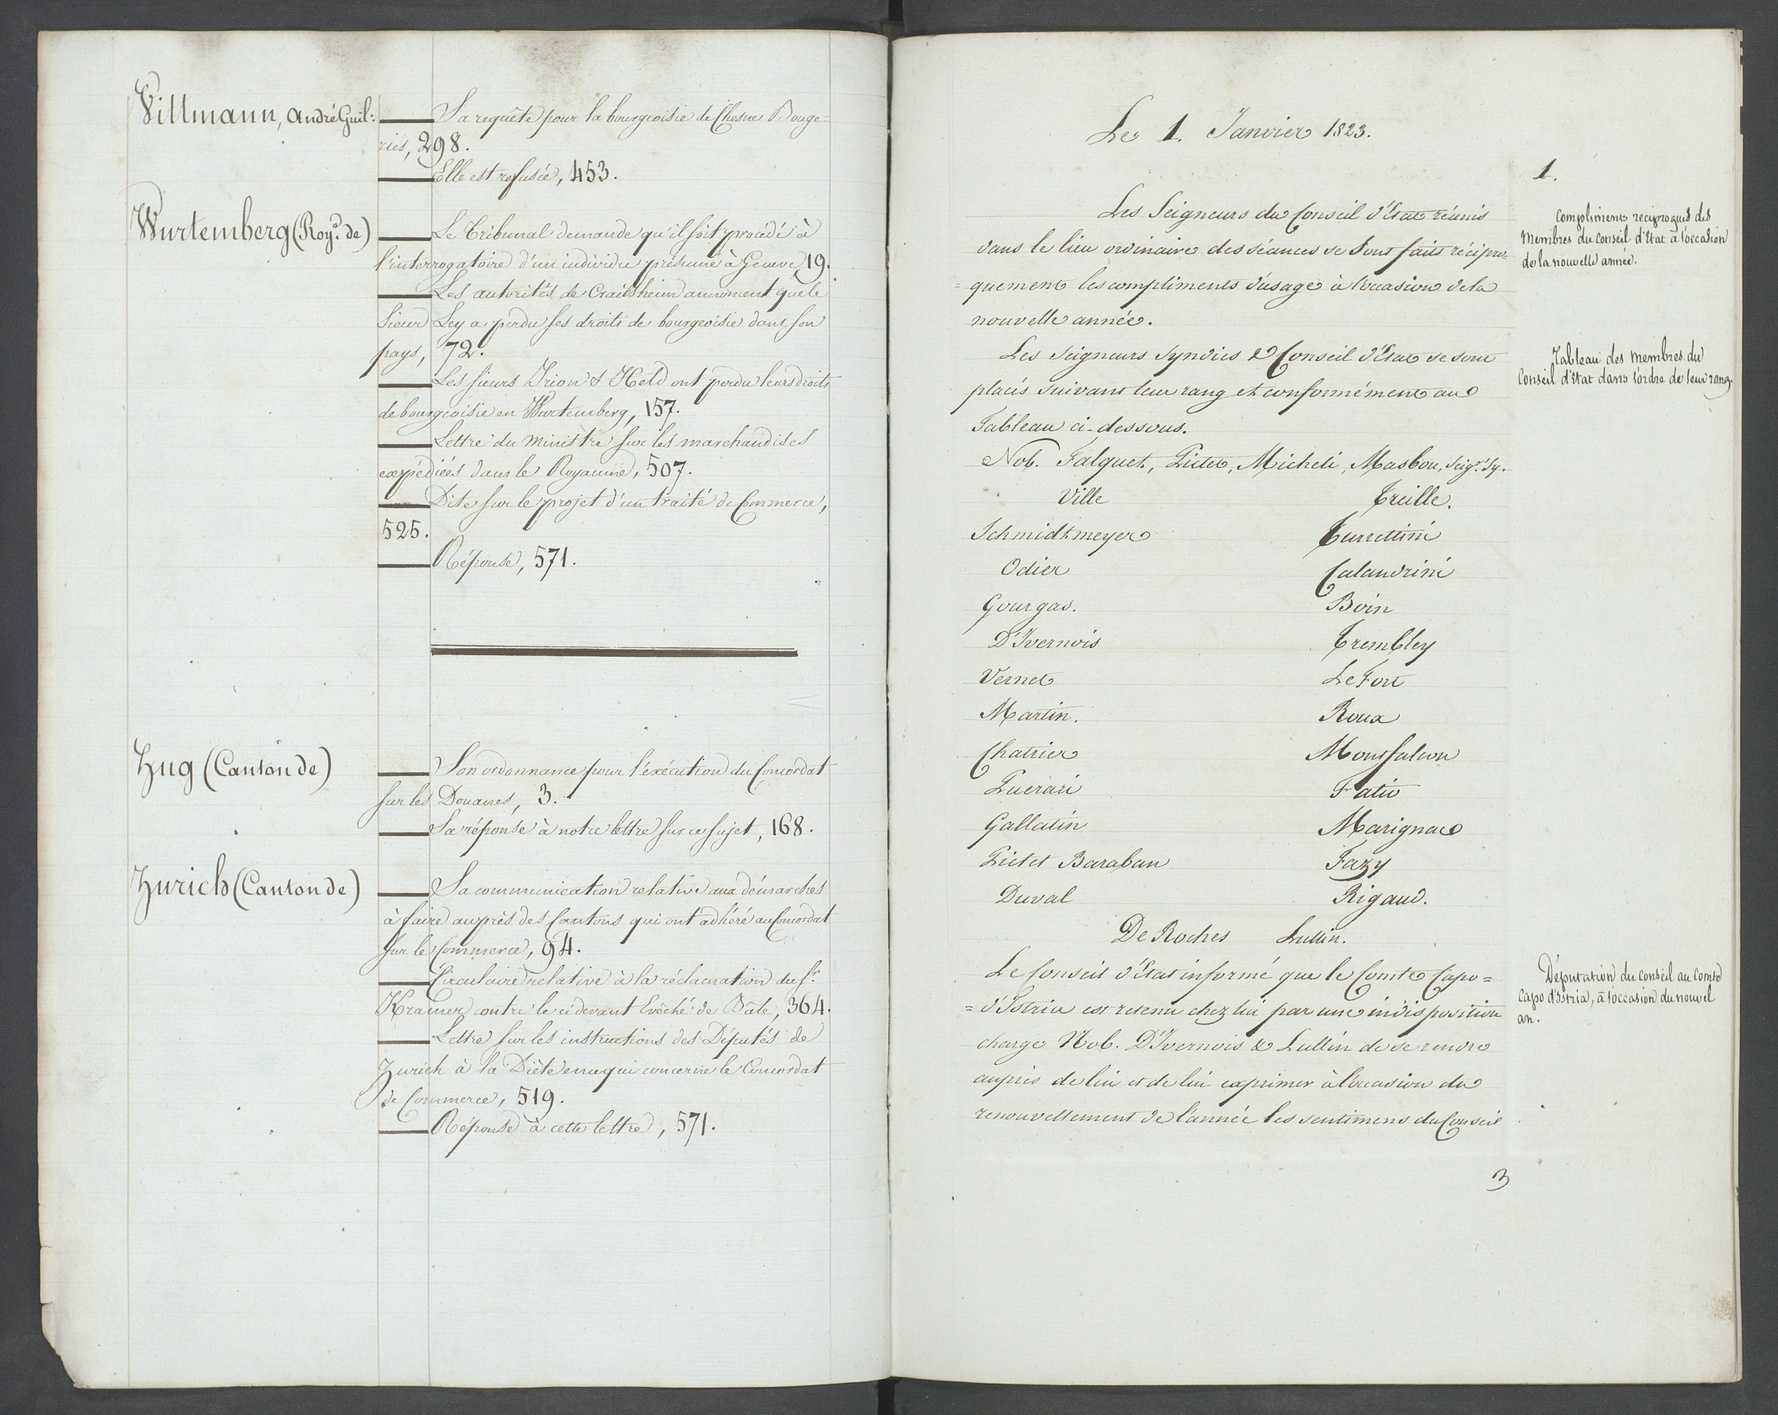 Wittmann, André Guil:
Sa requête pour la bourgeoisie de Chesne Bouge-
ries, 298.
Elle est refusée, 453.
Wurtemberg (Roye. de)
Le Tribunal demande qu'il soit procédé à
l'interrogatoire d'un individu présumé à Geneve, 19.
Les autorités de Crailsheim annoncent que le
Sieur Ley a perdu ses droits de bourgeoisie dans son
pays, 72.
Les sieurs Irion & Held ont perdu leurs droits
de bourgeoisie en Wurtemberg, 157.
Lettre du Ministre sur les marchandises
expédiées dans le Royaume, 507.
Dite sur le projet d'un traité de Commerce,
525.
Réponse, 571.
Zug (Canton de)
Son ordonnance pour l'exécution du Concordat
sur les Douanes, 3.
Sa réponse à notre lettre sur ce sujet, 168.
Zurich (Canton de)
Sa communication relative aux démarches
à faire auprès des Cantons qui ont adhéré au Concordat
sur le Commerce, 94.
Circulaire relative à la réclamation du Sr.
Kramer contre le ci devant Evêché de Bâle, 364.
Lettre sur les instructions des Députés de
Zurich à la Diète en ce qui concerne le Concordat
de Commerce, 519.
Réponse à cette lettre, 571.
Le 1. Janvier 1823.
1.
Les Seigneurs du Conseil d'Etat réunis
dans le lieu ordinaire des séances se sont faits récipro-
=quement les compliments d'usage à l'occasion de la
nouvelle année.
Compliments reciproques des
Membres du Conseil d'Etat à l'occasion
de la nouvelle année.
Les Seigneurs Syndics & Conseil d'Etat se sont
placés suivant leur rang et conformément au
Tableau ci-dessous.
Tableau des membres du
Conseil d'Etat dans l'ordre de leur rang.
Nob. Falquet, Pictet, Micheli, Masbou, Seigrs. Sy.
Ville Treille.
Schmidtmeyer Turrettini
Odier Calandrini
Gourgas. Boin
D'Ivernois Trembley
Vernet Le Fort
Martin. Roux
Chatrier Montfalcon
Puerari Fatio
Gallatin Marignac
Pictet Baraban Fazy
Duval Rigaud.
De Roches Lullin.
Le Conseil d'Etat informé que le Comte Capo=
=d'Istria est retenu chez lui par une indisposition
charge Nob. D'Ivernois & Lullin de se rendre
auprès de lui et de lui exprimer à l'occasion du
renouvellement de l'année les sentimens du Conseil
Députation du Conseil au Comte
Capo d'Istria, à l'occasion du nouvel
an.
3